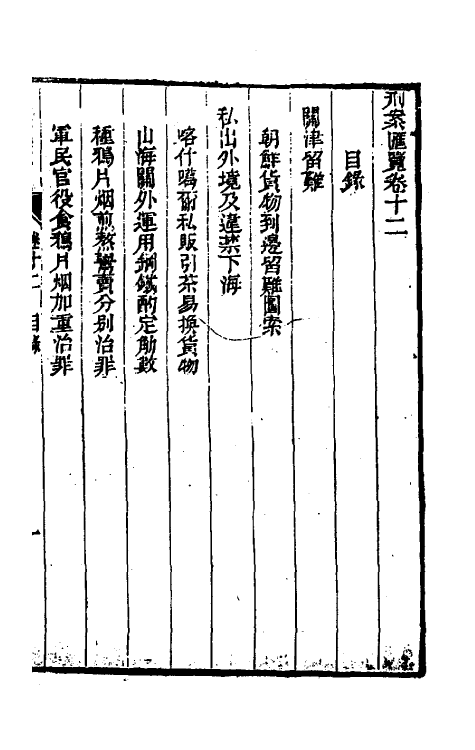 刑案匯覽卷十二
目錄
關津留難
朝鮮貨物到邊留難圖索
私出外境及違禁下海
喀什噶爾私販引茶易換貨物
山海關外運用鋼鐵酌定觔數
種鴉片烟煎熬鬻賣分别治罪
軍民官役食鴉片烟加重治罪
卷十二 目錄 一